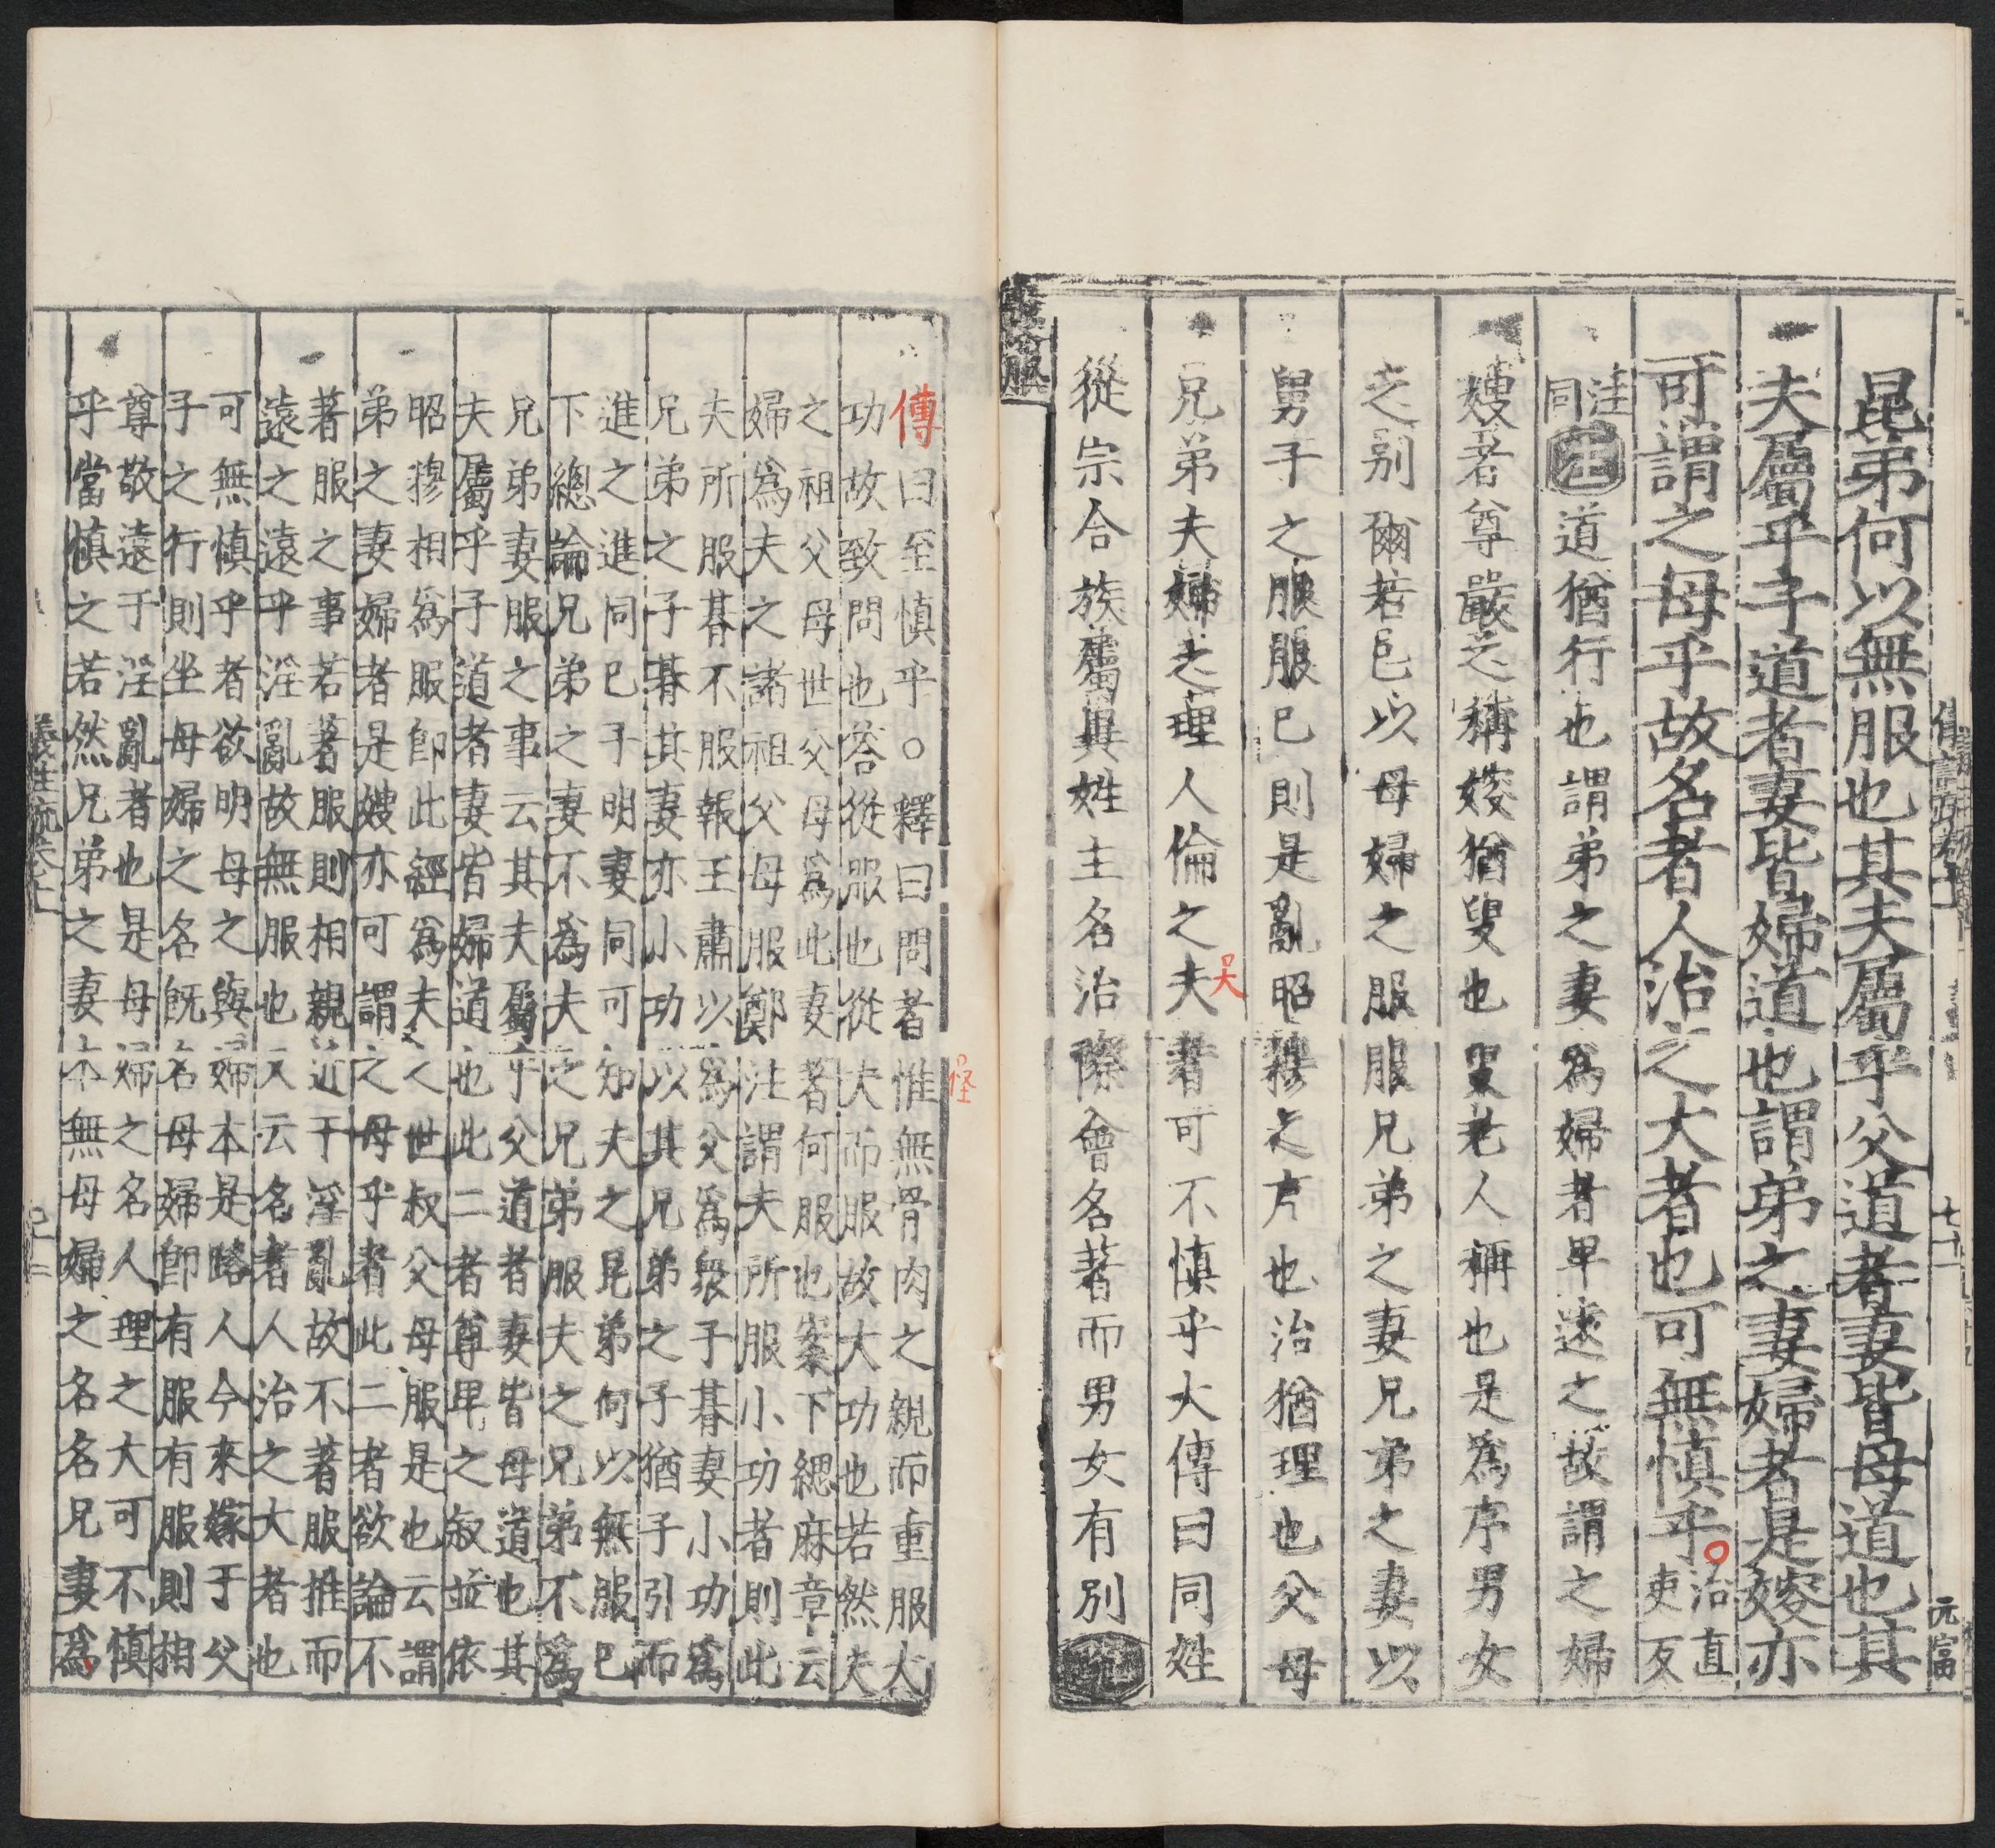 昆弟何以無服也其夫屬乎父道者妻皆母道也其
夫屬乎子道者妻皆婦道也謂弟之妻婦者是嫂亦
可謂之母乎故名者人治之大者也可無慎乎
治直
吏反
注
同
注
道猶行也謂弟之妻為婦者卑遠之故謂之婦
嫂者尊嚴之稱嫂猶叟也叟老人稱也是為序男女
之别爾若已以母婦之服服兄弟之妻兄弟之妻以
舅子之服服巳則是亂昭穆之序也治猶理也父母
兄弟夫婦之理人倫之夫者可不慎乎大傳曰同姓
吴
從宗合族屬異姓主名治際會名著而男女有別
疏
元富
傳曰至慎乎○釋曰問者惟無骨肉之親而重服大
怪
功故致問也答從服也從夫而服故大功也若然夫
之祖父母世父母為此妻著何服也案下緦麻章云
婦為夫之諸祖父母服鄭注謂夫所服小功者則此
夫所服朞不服報王肅以為父為衆子朞妻小功為
兄弟之子朞其妻亦小功以其兄弟之子猶子引而
進之進同巳子明妻同可知夫之昆弟何以無服巳
下緫論兄弟之妻不為夫之兄弟服夫之兄弟不為
兄弟妻服之事云其夫屬乎父道者妻皆母道也其
夫屬乎子道者妻皆婦道也此二者尊卑之叙並依
昭穆相為服即此經為夫之世叔父母服是也云謂
弟之妻婦者是嫂亦可謂之母乎者此二者欲論不
著服之事若著服則相親近于淫亂故不著服推而
遠之遠乎淫亂故無服也又云名者人治之大者也
可無慎乎者欲明母之與婦本是路人今來嫁于父
子之行則坐母婦之名既名母婦即有服有服則相
尊敬遠于淫亂者也是母婦之名人理之大可不慎
乎當慎之若然兄弟之妻本無母婦之名名兄妻為